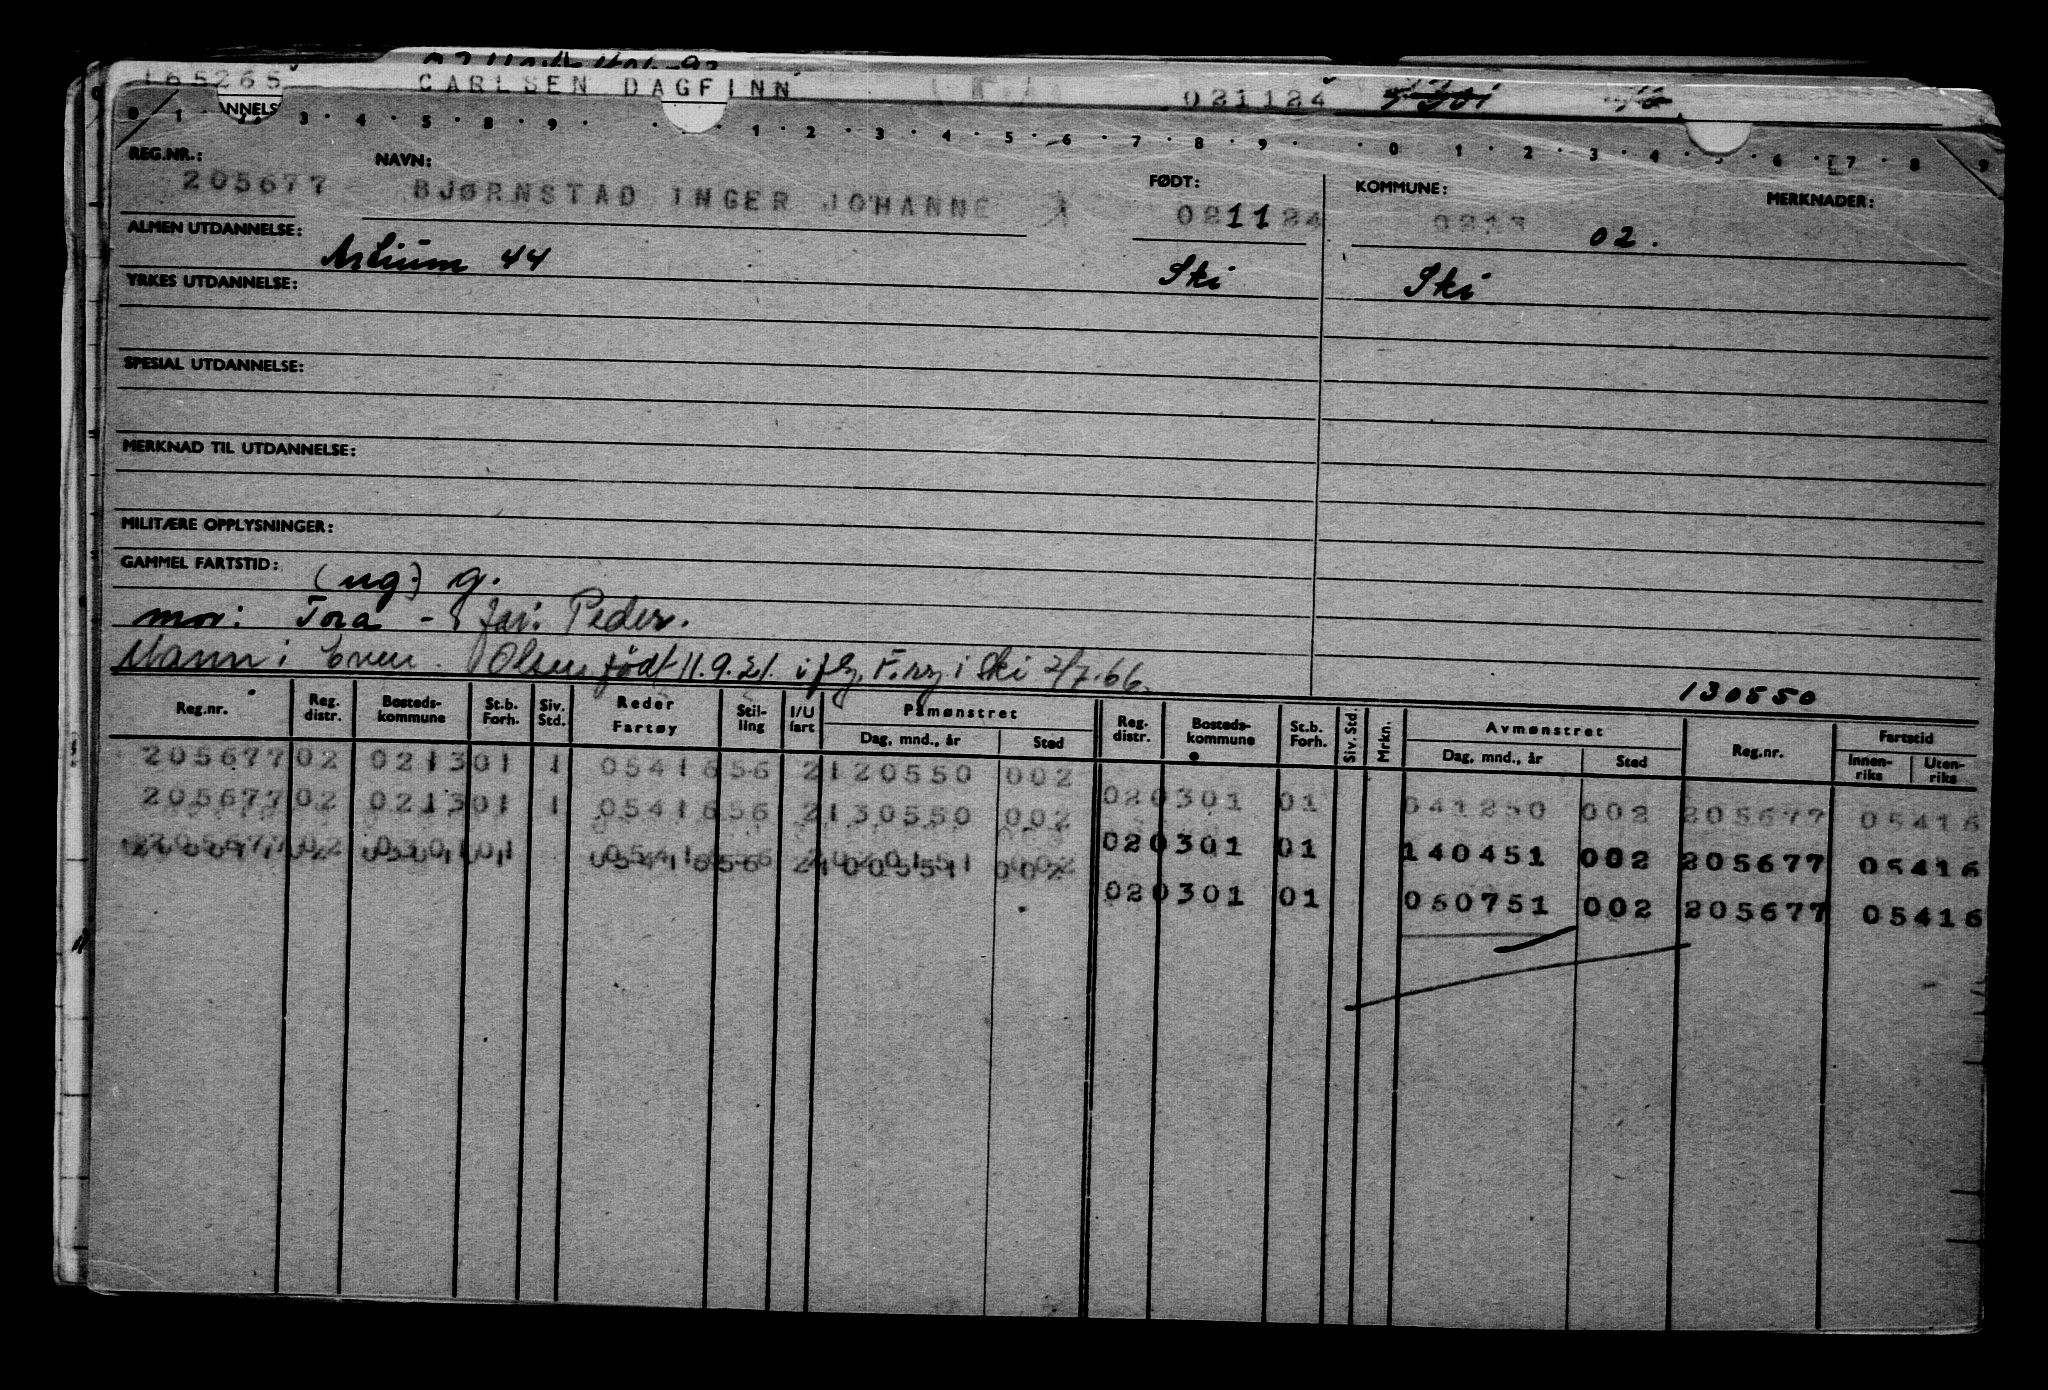 165265 CARLSEN DAGFINN 021124
ANNELS
0 1 3 4 5 8 9 1 2 3 4 5 6 7 8 9 0 1 2 3 4 5 6 7 8 9
REG.NR.: NAVN: FØDT: KOMMUNE: MERKNADER:
205677 BJØRNSTAD INGER JOHANNE 021124 0213 02.
ALMEN UTDANNELSE: Artium 44 Ski Ski
YRKES UTDANNELSE:
SPESIAL UTDANNELSE:
MERKNAD TIL UTDANNELSE:
MILITÆRE OPPLYSNINGER:
GAMMEL FARTSTID: (ug.) g.
mor: Tora - far: Peder.
Mann: Even Olsen født 11.9.21. i Ski 2/7.66.
130550
Reg.nr. Reg. distr. Bosteds-kommune St.b. Forh. Siv. Std. Reder Fartøy Stil-ling I/U fart Påmønstret Dag, mnd., år Sted Reg. distr. Bosteds-kommune St.b. Forh. Siv. Std. Mrkn. Avmønstret Dag, mnd., år Sted Reg.nr. Fartstid Innen-riks Uten-riks
205677 02 0213 01 1 05416 56 2 120550 002
205677 02 0213 01 1 05416 56 2 130550 002 02 0301 01 041250 002 205677 05416
02 0301 01 140451 002 205677 05416
02 0301 01 050751 002 205677 05416